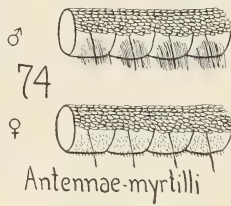 ♂
74
♀
Antennae-myrtilli